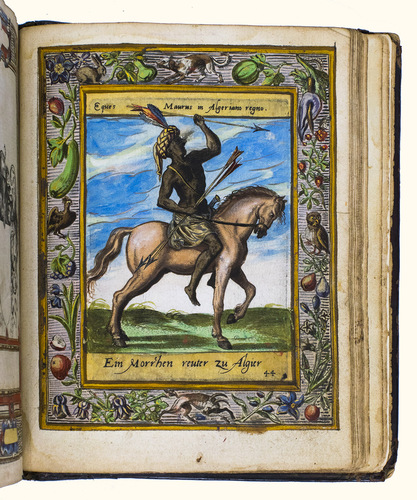 Eques Maurus in Algeriano regno.
Ein Morrhen reuter zu Algier
44